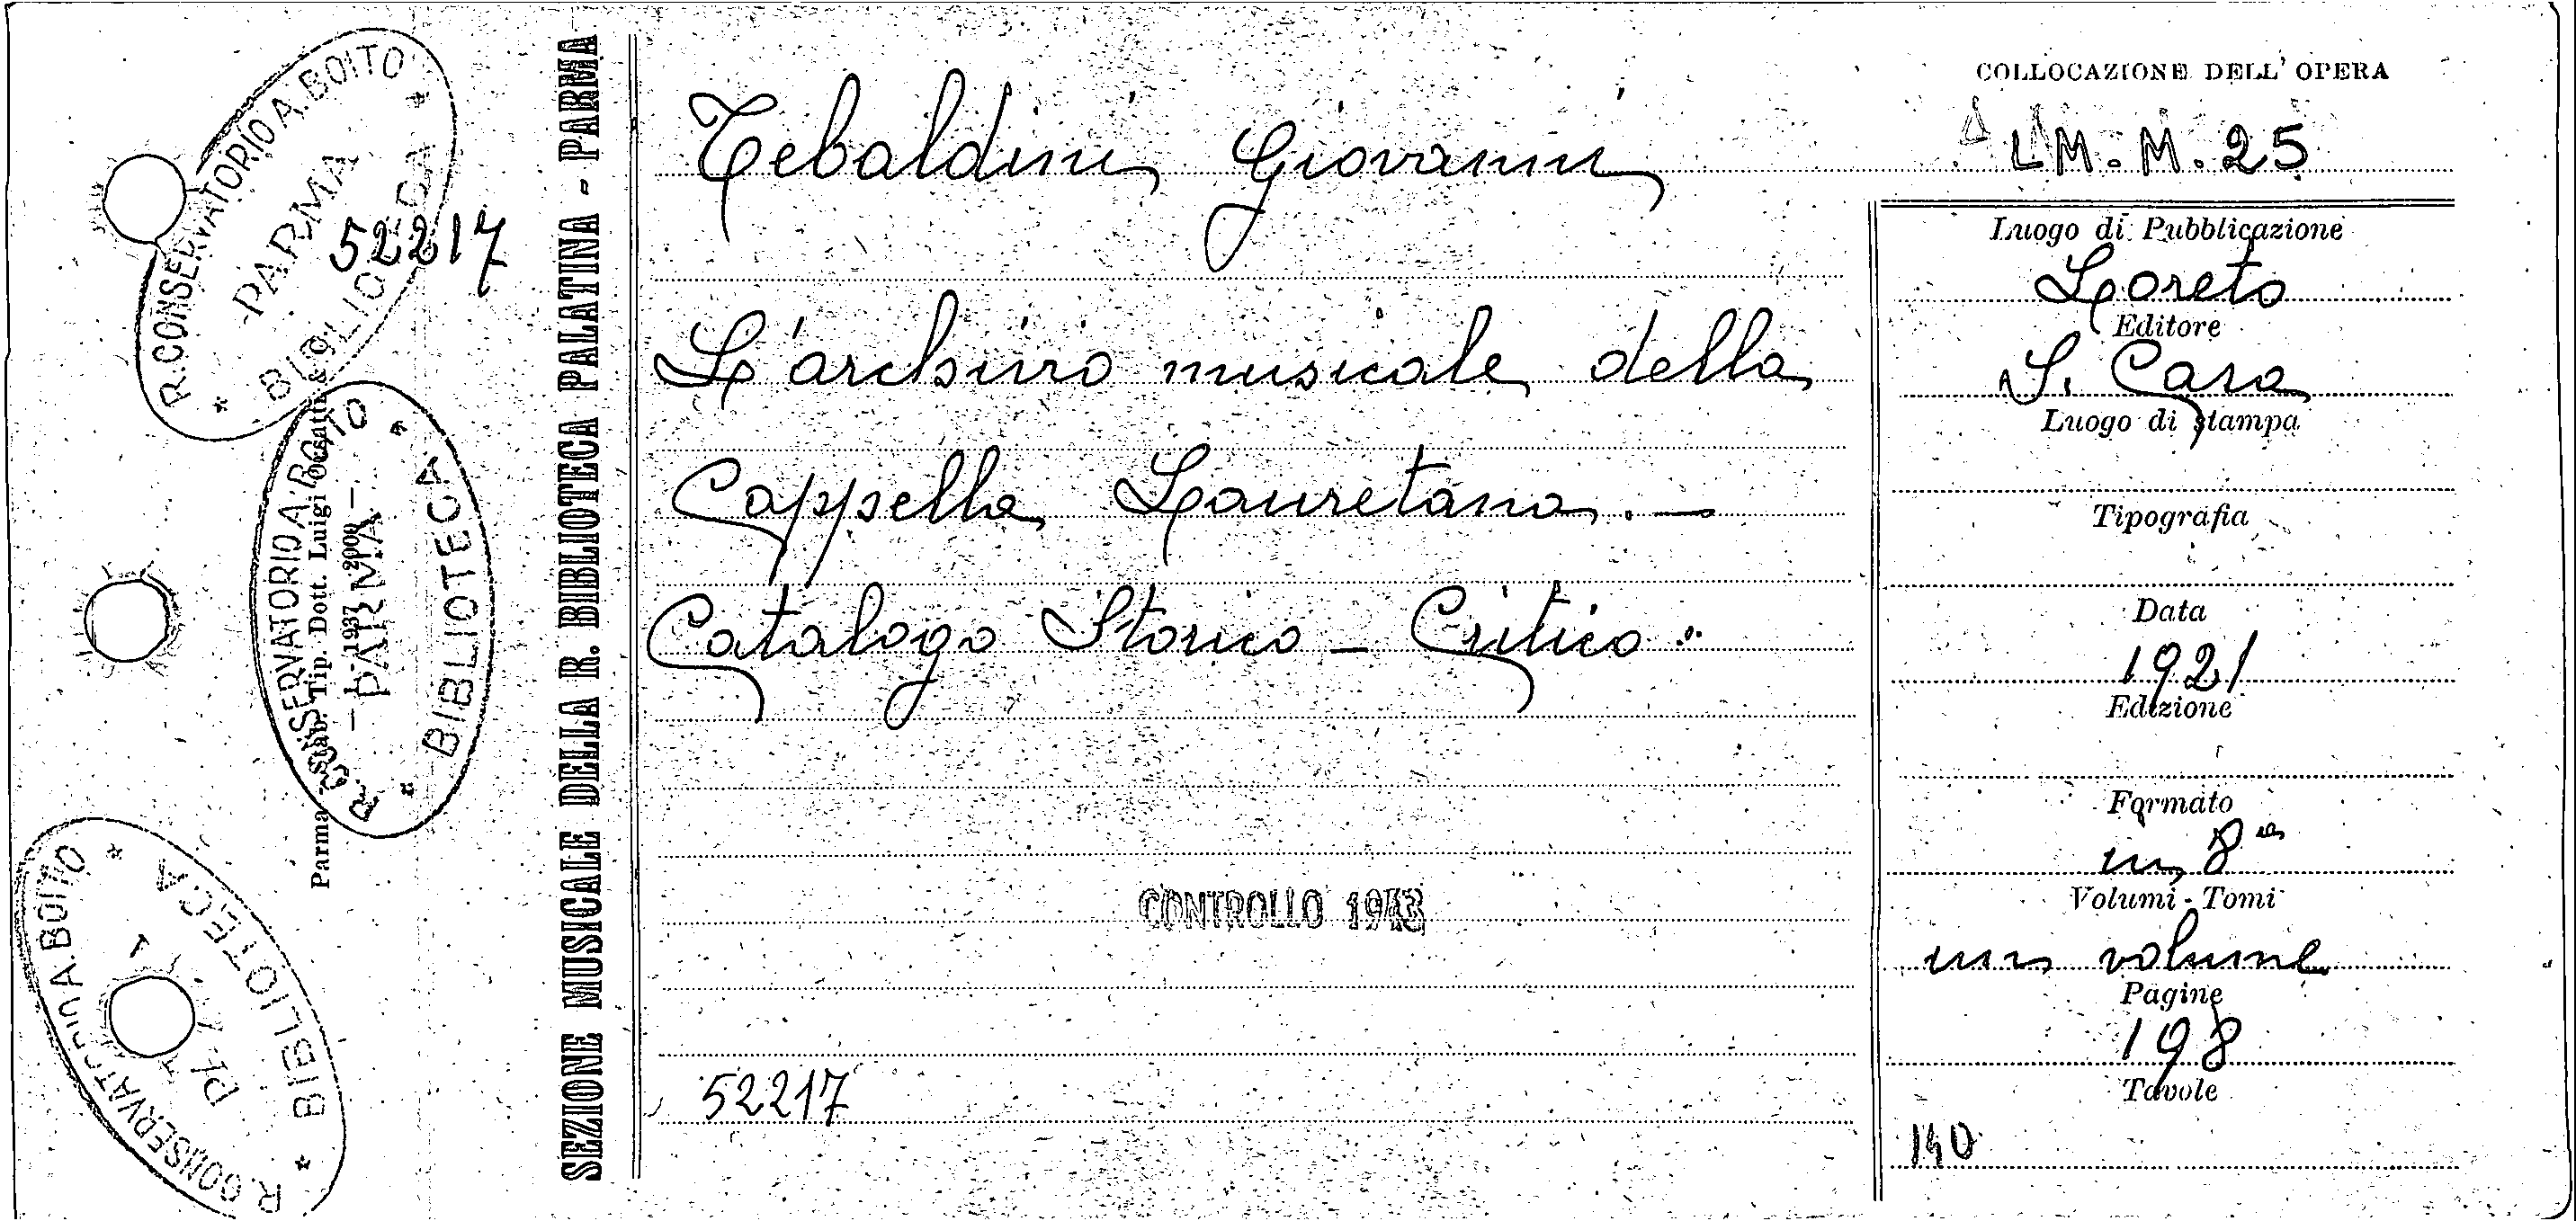 R. CONSERVATORIO A. BOITO
PARMA
BIBLIOTECA
52217
R. CONSERVATORIO A. BOITO
PARMA
BIBLIOTECA
Parma - Stab. Tip. Dott. Luigi Orsatti & C.
1937 2000
R. CONSERVATORIO A. BOITO
BIBLIOTECA
SEZIONE MUSICALE DELLA R. BIBLIOTECA PALATINA - PARMA
Tebaldini Giovanni
L'archivio musicale della
Cappella Lauretana. —
Catalogo Storico - Critico.
CONTROLLO 1943
52217
COLLOCAZIONE DELL' OPERA
LM. M. 25
Luogo di Pubblicazione
Loreto
Editore
S. Casa
Luogo di stampa
Tipografia
Data
1921
Edizione
Formato
in 8°
Volumi - Tomi
un volume
Pagine
198
Tavole
140